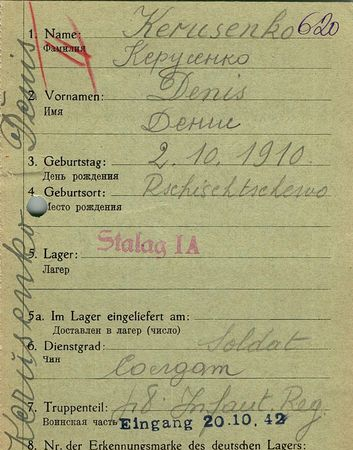 620
1. Name: Kerusenko
Фамилия Керусенко
2. Vornamen: Denis
Имя Денис
3. Geburtstag: 2. 10. 1910.
День рождения
4. Geburtsort: Rschischtschewo
Место рождения
5. Lager: Stalag IA
Лагерь
5a. Im Lager eingeliefert am:
Доставлен в лагерь (число)
6. Dienstgrad: Soldat
Чин Солдат
7. Truppenteil: Infant. Reg.
Воинская часть Eingang 20.10.42
8. Nr. der Erkennungsmarke des deutschen Lagers:
Kerusenko Denis